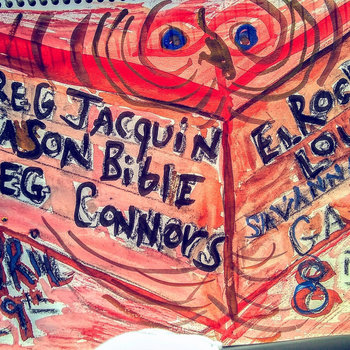 REG JACQUIN
ASON BiblE
EG CONNORS
RIL
9TH
EL ROC
LOU
SAVANN
GA
8